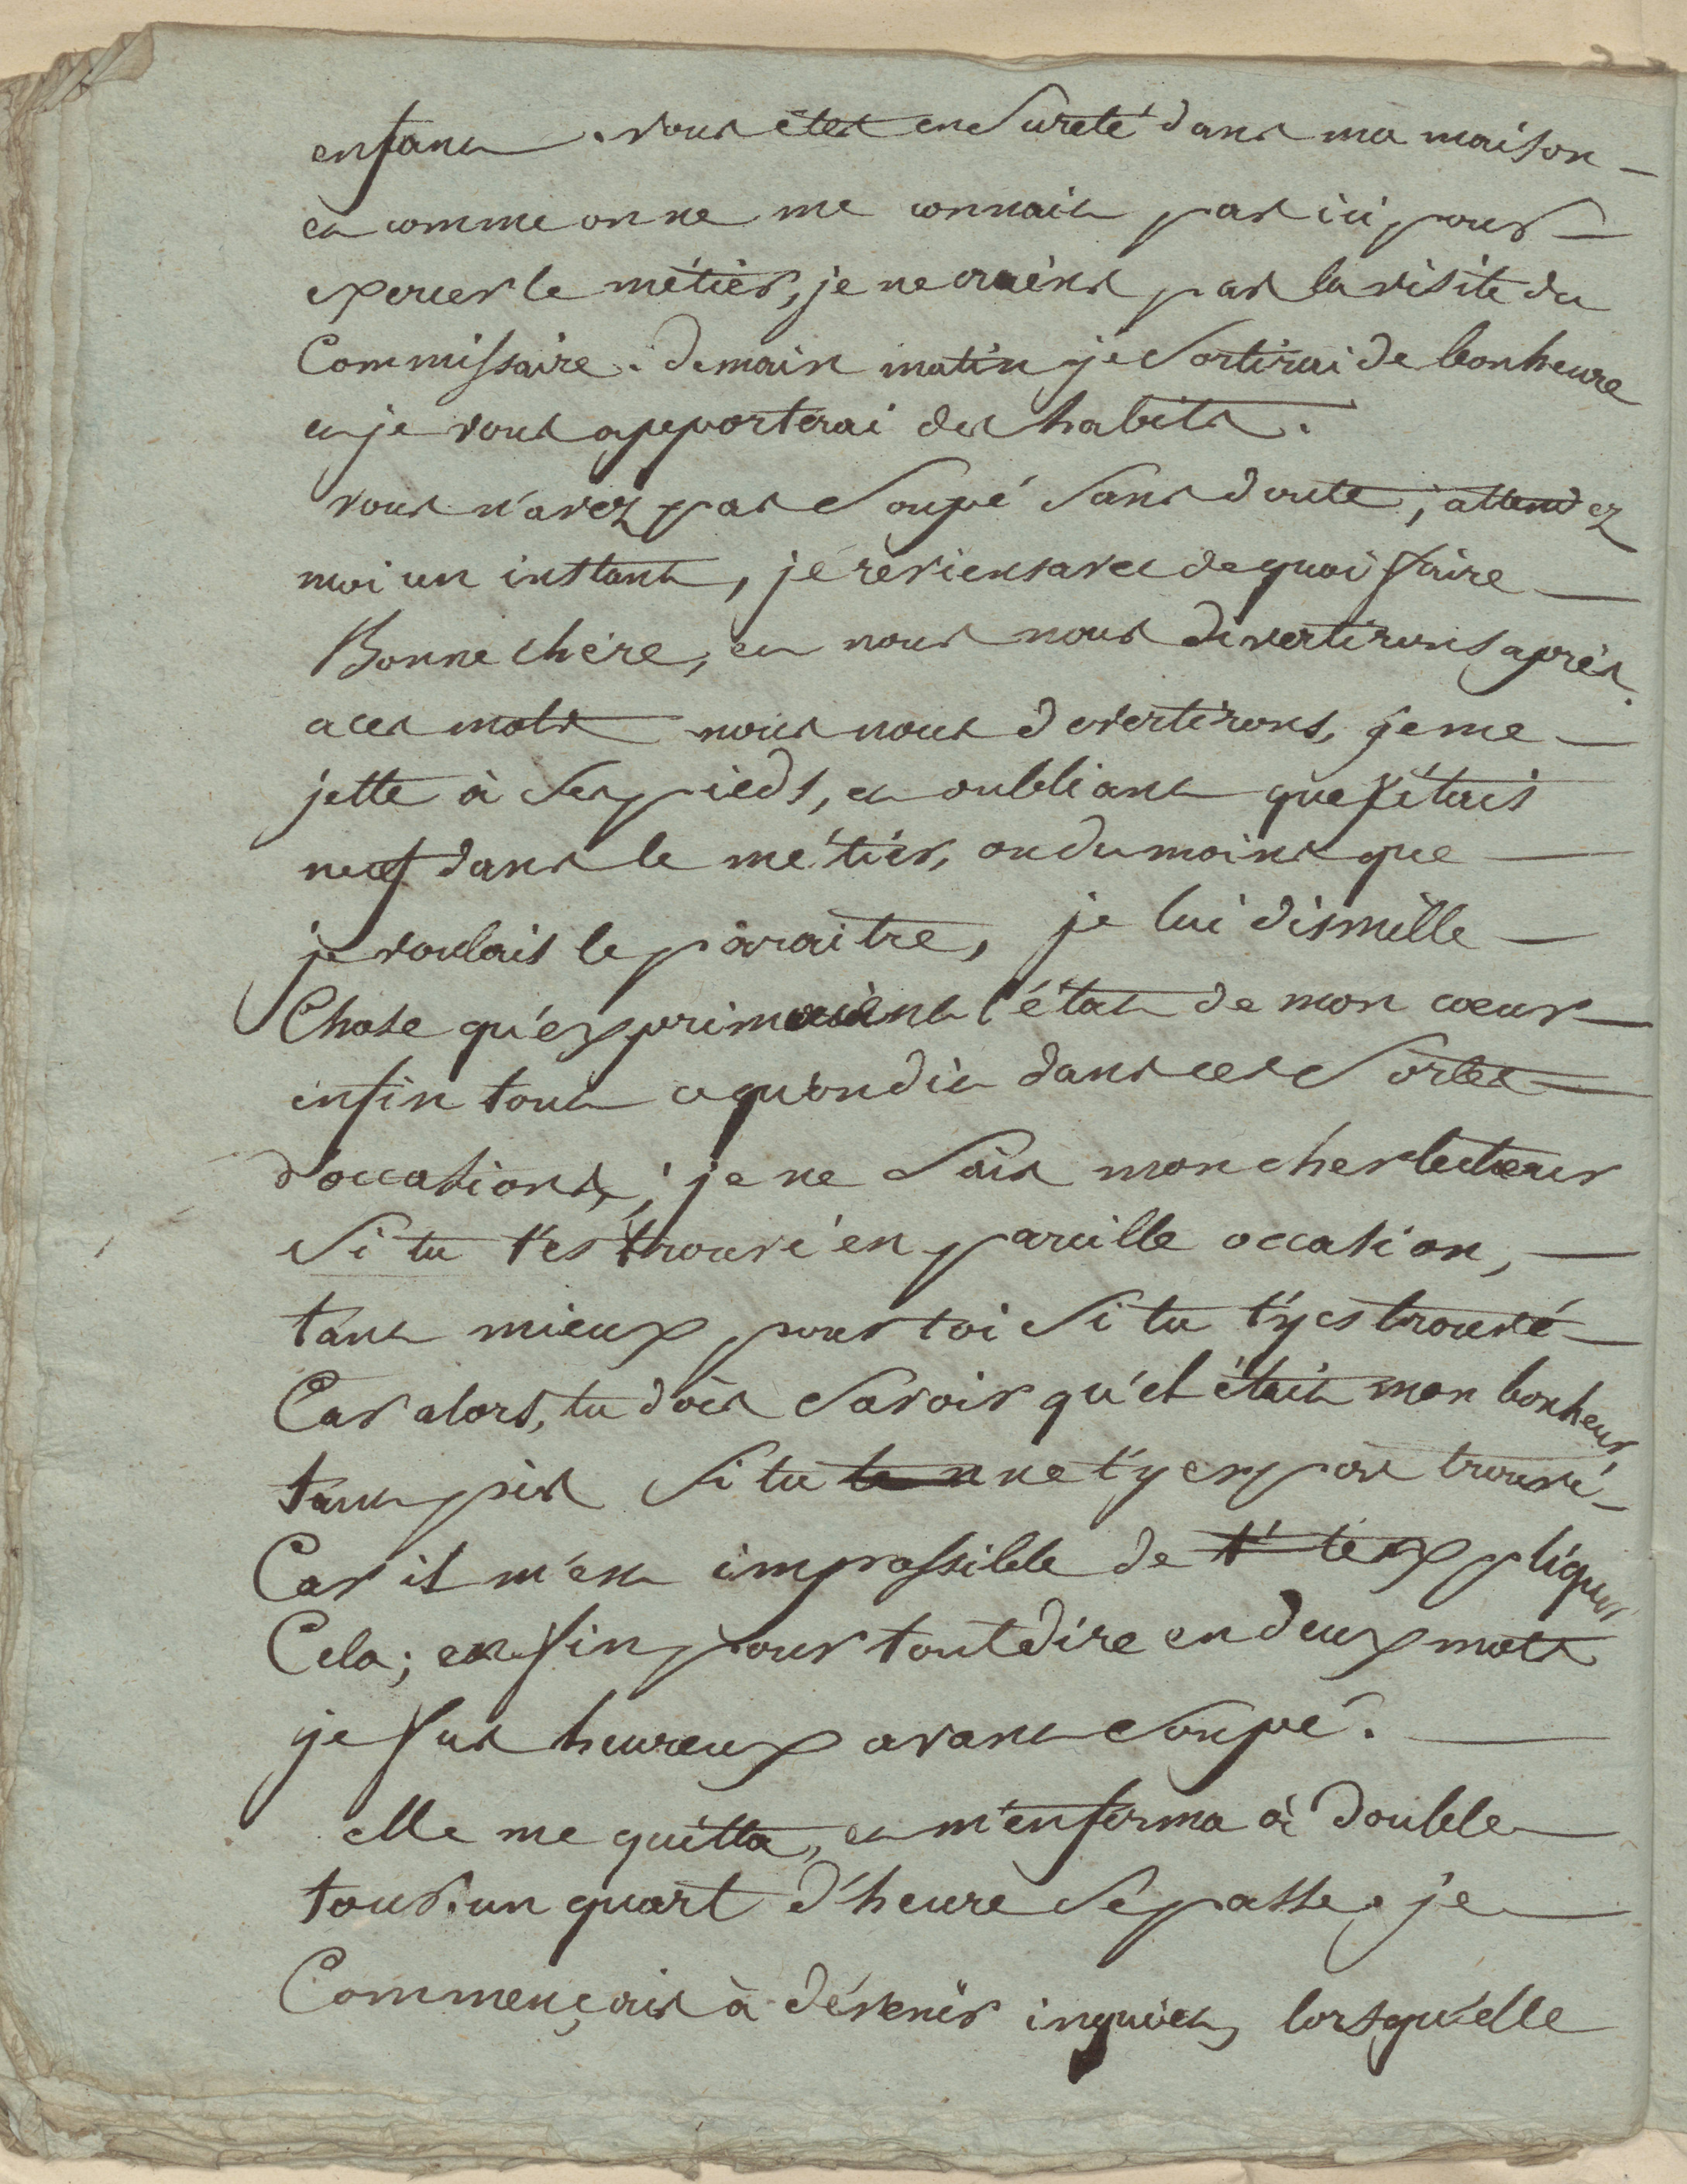 enfant . vous êtes en Sureté dans ma maison —
et comme on ne me connait pas ici pour —
exercer le métier, je ne crains pas la visite du
Commissaire . demain matin je Sortirai de bonheure
et je vous apporterai des habits .
vous n'avez pas Soupé Sans doute, attendez
moi un instant, je reviens avec de quoi faire —
Bonne chère, et nous nous divertirons après .
a ces mots nous nous divertirons, je me —
jette à Ses pieds, et oubliant que j'étais
neuf dans le métier, ou du moins que —
je voulais le paraitre, je lui dis mille —
Chose qu'exprimaient l'état de mon cœur —
enfin tout ce qu'on dit dans ces Sortes —
d'occasions, ; je ne Sais mon cher lecteur
Si tu t'es trouvé en pareille occasion, —
tant mieux pour toi Si tu t'y es trouvé —
Car alors, tu dois Savoir qu'el était mon bonheur,
tant pis Si tu te ne t'y es pas trouvé —
Car il m'est impossible de t' t'expliquer
Cela ; enfin pour tout dire en deux mots
je fus heureux avant Soupé . —
elle me quitta, et m'enferma à double —
tour . un quart d'heure Se passe, je —
Commençais à dévenir inquiet, lorsqu'elle